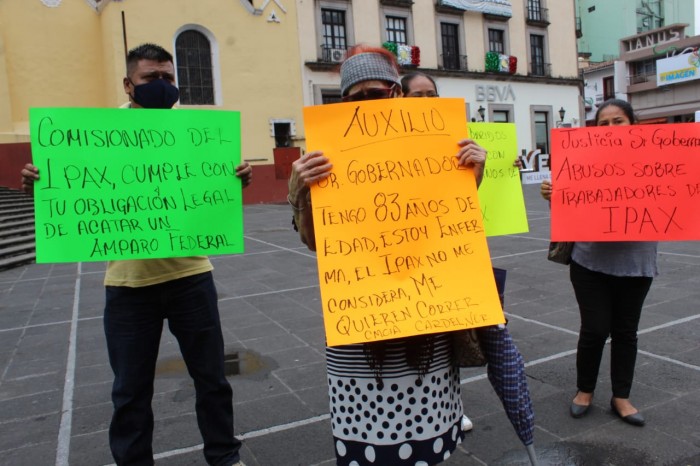 COMISIONADO DEL
IPAX, CUMPLE CON
TU OBLIGACIÓN LEGAL
DE ACATAR UN
AMPARO FEDERAL
AUXILIO
SR. GOBERNADOR
TENGO 83 AÑOS DE
EDAD, ESTOY ENFER
MA, EL IPAX NO ME
CONSIDERA, ME
QUIEREN CORRER
CON
JUSTICIA SR GOBER
ABUSOS SOBRE
TRABAJADORES D
IPAX
BBVA
JANUS
IMAGEN